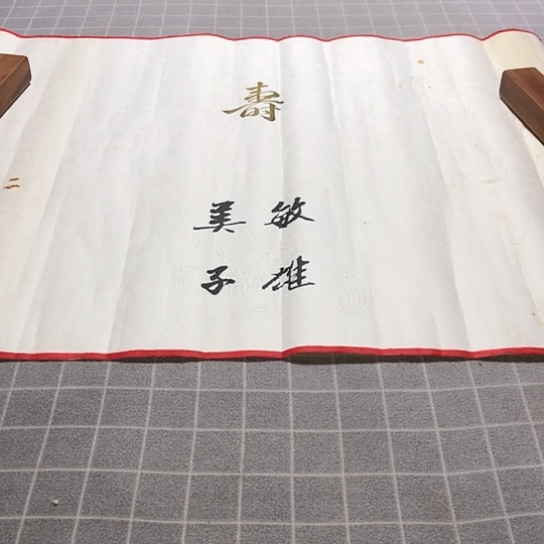 寿
敏雄
美子